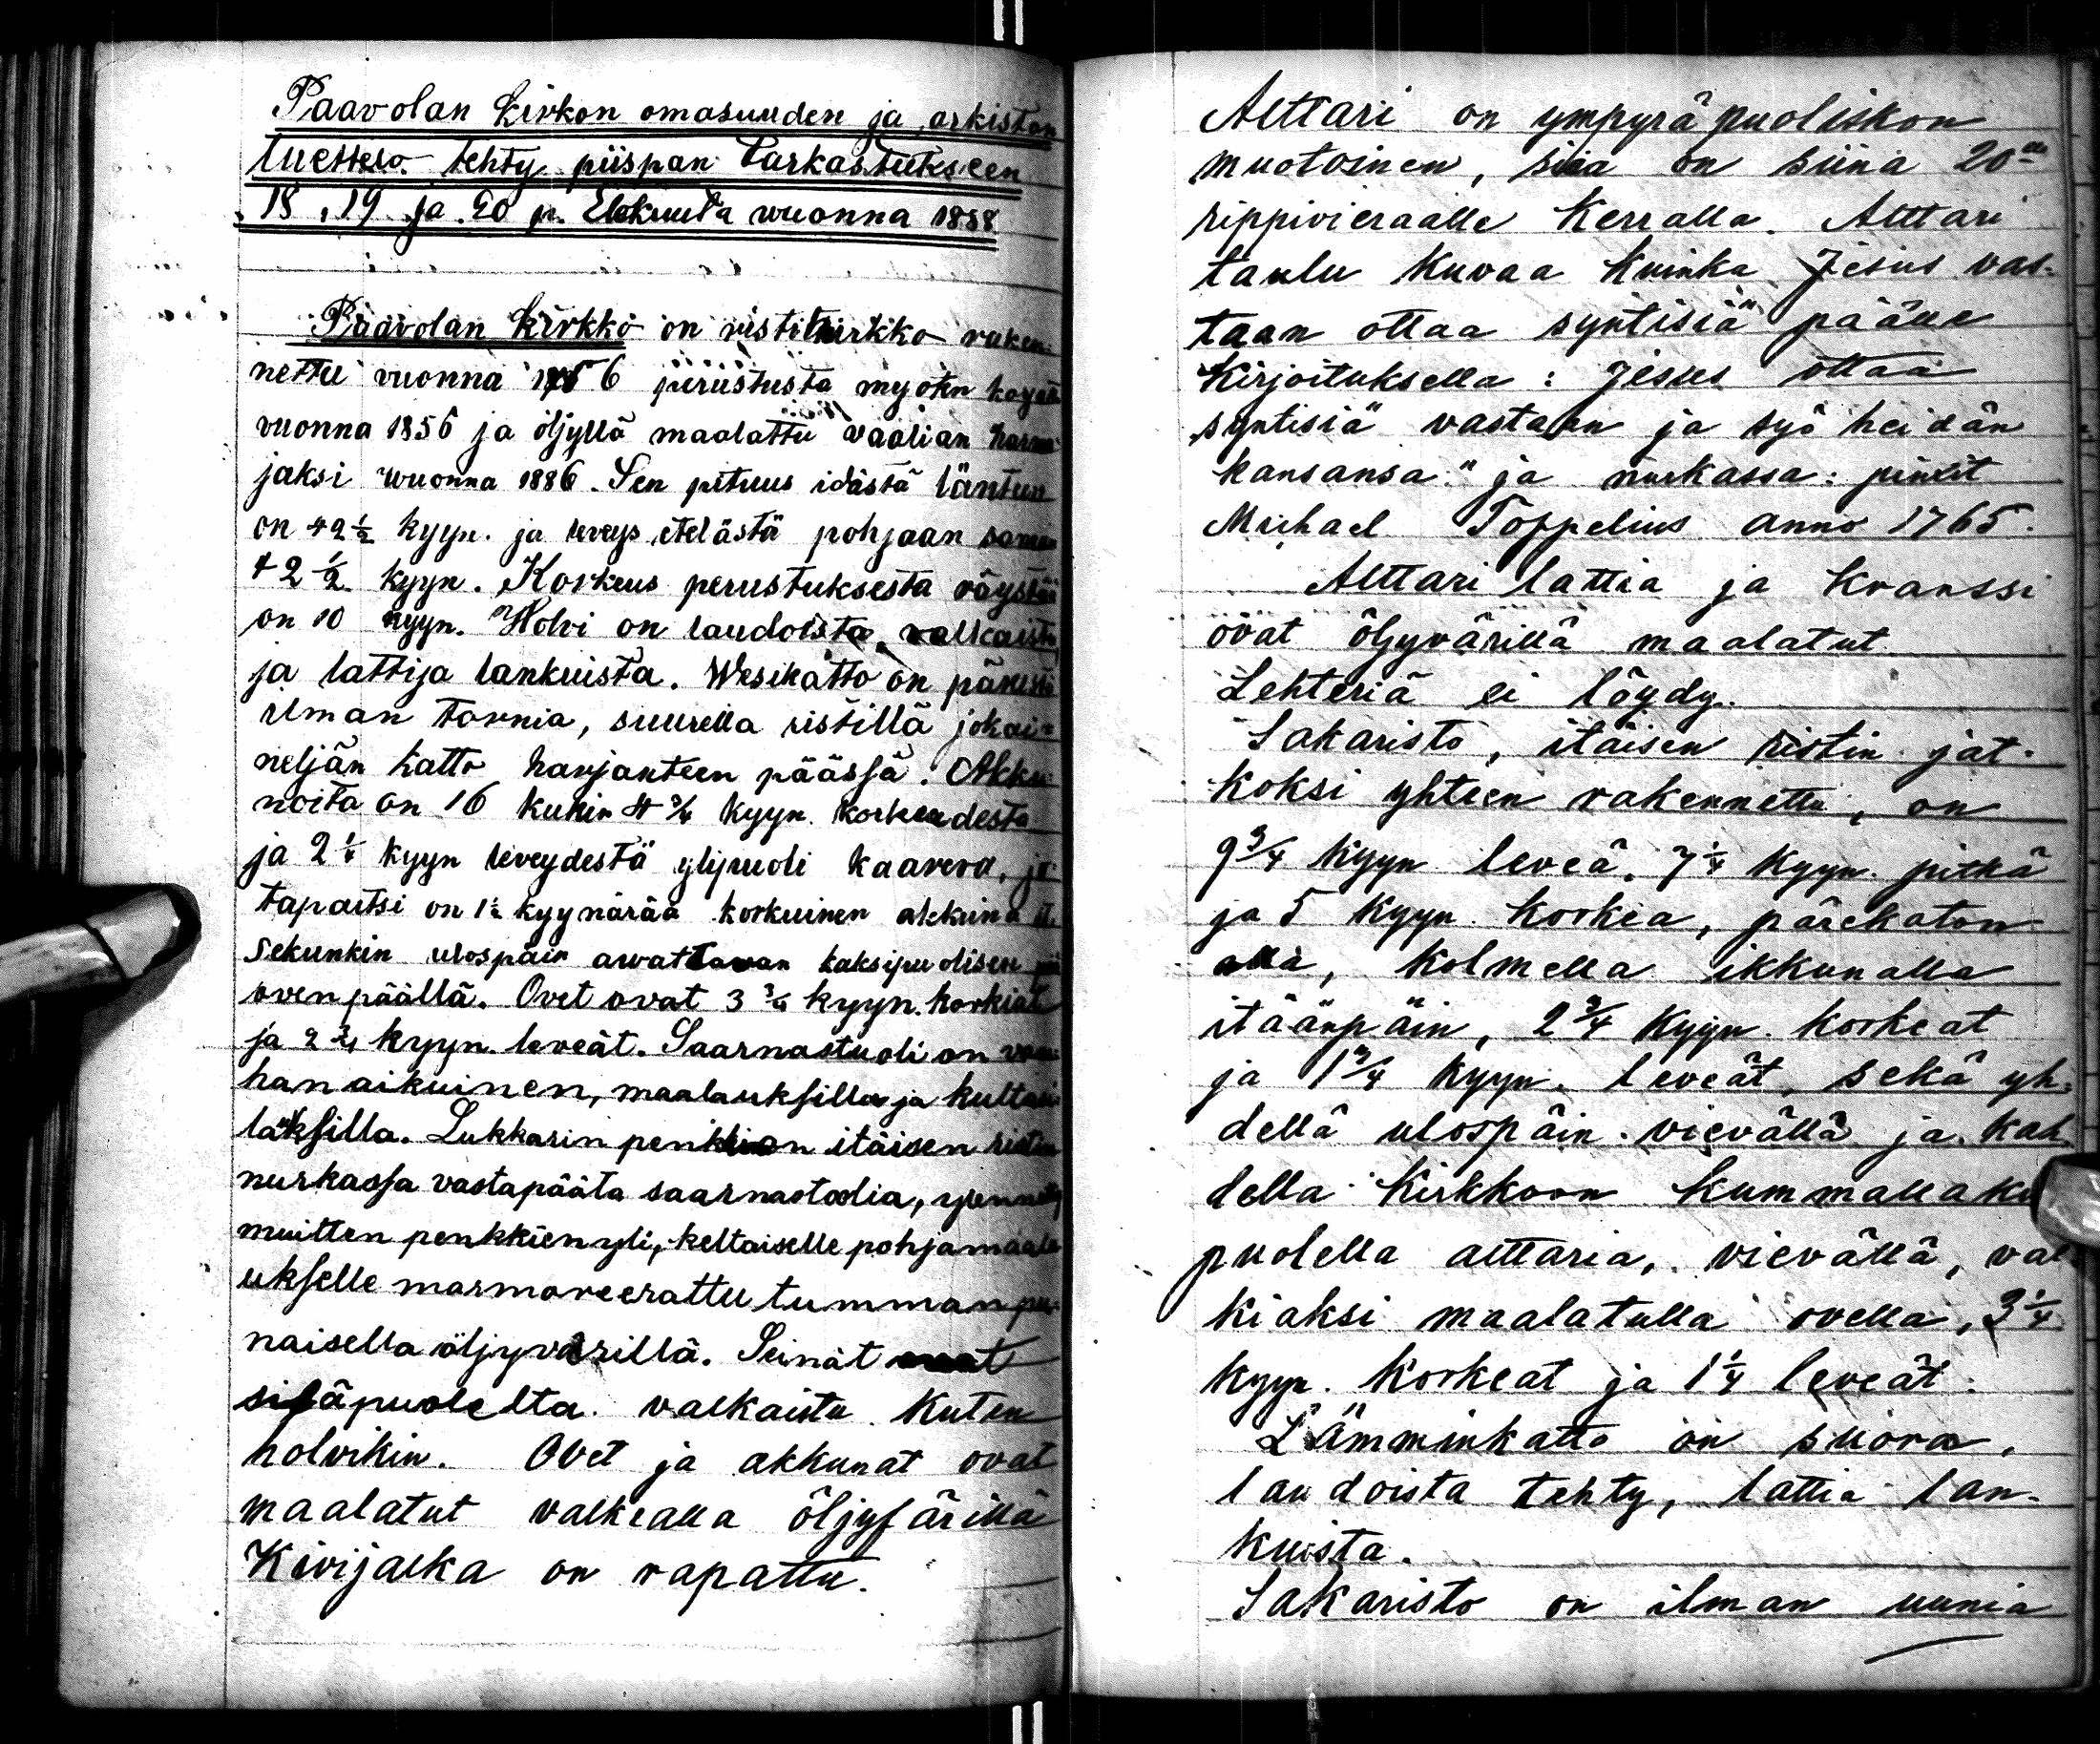 Paavolan kirkon omasuuden ja arkiston
luettelo tehty piispan Tarkastukseen
18, 19 ja 20 p. Elokuuta vuonna 1888
Paavolan kirkko on ristikirkko raken-
nettu vuonna 1756 perustusta myöten
vuonna 1856 ja öljyllä maalattu vaalian harma-
jaksi wuonna 1886. Sen pituus idästä länteen
on 42 1/2 kyyn. ja leveys etelästä pohjaan sama
42 1/2 kyyn. Korkeus perustuksesta räystää
on 10 kyyn. Holvi on laudoista, valkaistu
ja lattija lankuista. Wesikatto on päreistä
ilman tornia, suurella ristillä jokai-
neljän katto harjanteen päässä. Akku-
noita on 16 kukin 4 3/4 kyyn. korkeudesta
ja 2 1/4 kyyn leveydestä ylipuoli kaareva, jo-
tapaitsi on 1 1/2 kyynärää korkuinen akkuna it-
sekunkin ulospäin awattavan kaksipuolisen
oven päällä. Ovet ovat 3 3/4 kyyn. korkiat
ja 2 3/4 kyyn. leveät. Saarnastuoli on van-
han aikuinen, maalauksilla ja kultai-
lauksilla. Lukkarin penkki on itäisen ristin
nurkassa vastapäätä saarnastoolia, ylennetty
muitten penkkien yli, keltaiselle pohjamaala-
ukselle marmoreerattu tumman pu-
naisella öljyvärillä. Seinät ovat
sisäpuolelta valkaistu kuten
holvikin. Ovet ja akkunat ovat
maalatut valkealla öljyfärillä
Kivijalka on rapattu.
Alttari on ympyräpuoliskon
muotoinen, siia on siinä 20lle
rippivieraalle kerralla. Alttari
taulu kuvaa kuinka Jesus vas-
taan ottaa syntisiä päälle
kirjoituksella: Jesus ottaa
syntisiä vastaan ja syö heidän
kansansa." ja nurkassa: pinxit
Michael Toppelius anno 1765.
Alttari lattia ja kranssi
ovat öljyvärillä maalatut.
Lehteriä ei löydy.
Sakaristo, itäisen ristin jat-
koksi yhteen rakennettu, on
9 3/4 kyyn leveä, 7 1/4 kyyn. pitkä
ja 5 kyyn. korkea, pärekaton
alla, kolmella ikkunalla
itäänpäin, 2 3/4 kyyn. korkeat
ja 1 3/4 kyyn. leveät, sekä yh-
dellä ulospäin vievällä ja kah
della kirkkoon kummallaki
puolella alttaria, vievällä, val
kiaksi maalatulla ovella, 3 1/4
kyyn. korkeat ja 1 1/4 leveät.
Lämminkatto on suora,
laudoista tehty, lattia lan-
kuista.
Sakaristo on ilman uunia